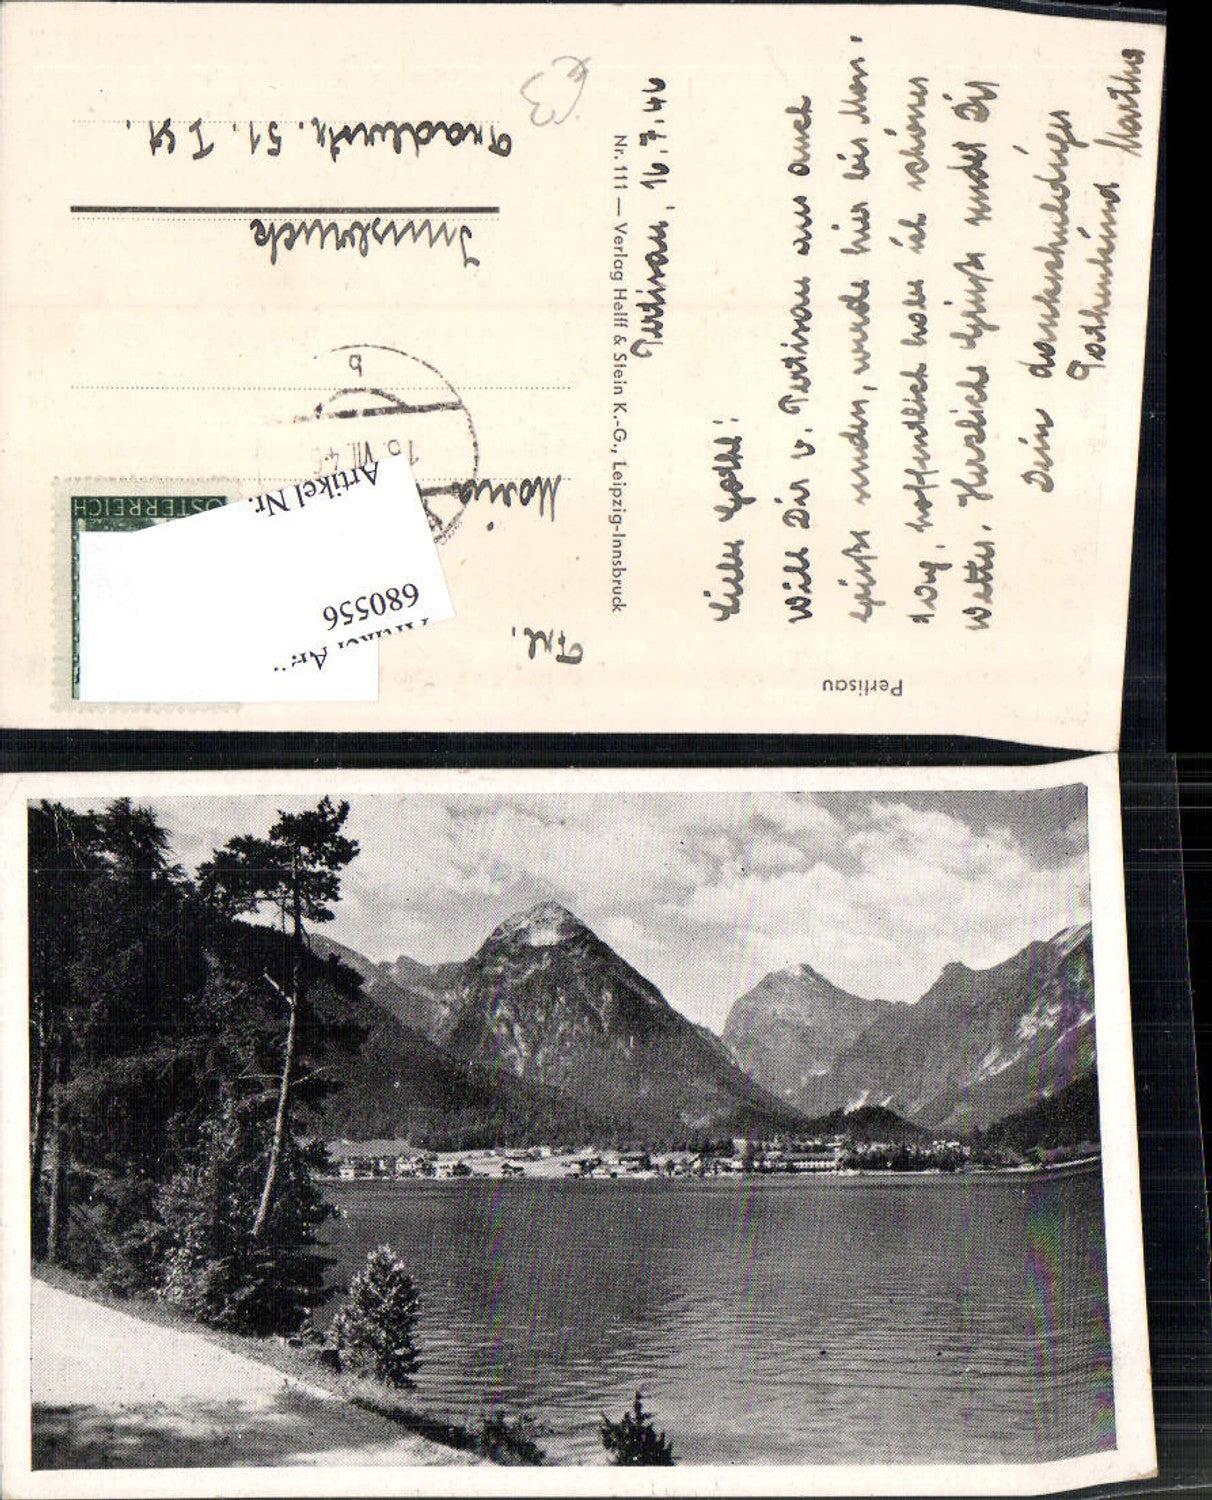 Pertisau
Pertisau, 16.7.46
Liebe Gothl!
Will Dir v. Pertisau aus auch
Grüße senden, werde hier bis Mon-
tag, hoffentlich habe ich schönes
Wetter. Herzliche Grüße sendet Dir
Dein dankschuldiges
Martha
Nr. 111 — Verlag Helff & Stein K.-G., Leipzig-Innsbruck
Frl.
Maria
Innsbruck
51. I St.
ÖSTERREICH
VII. 46
b
Artikel Nr.
680556